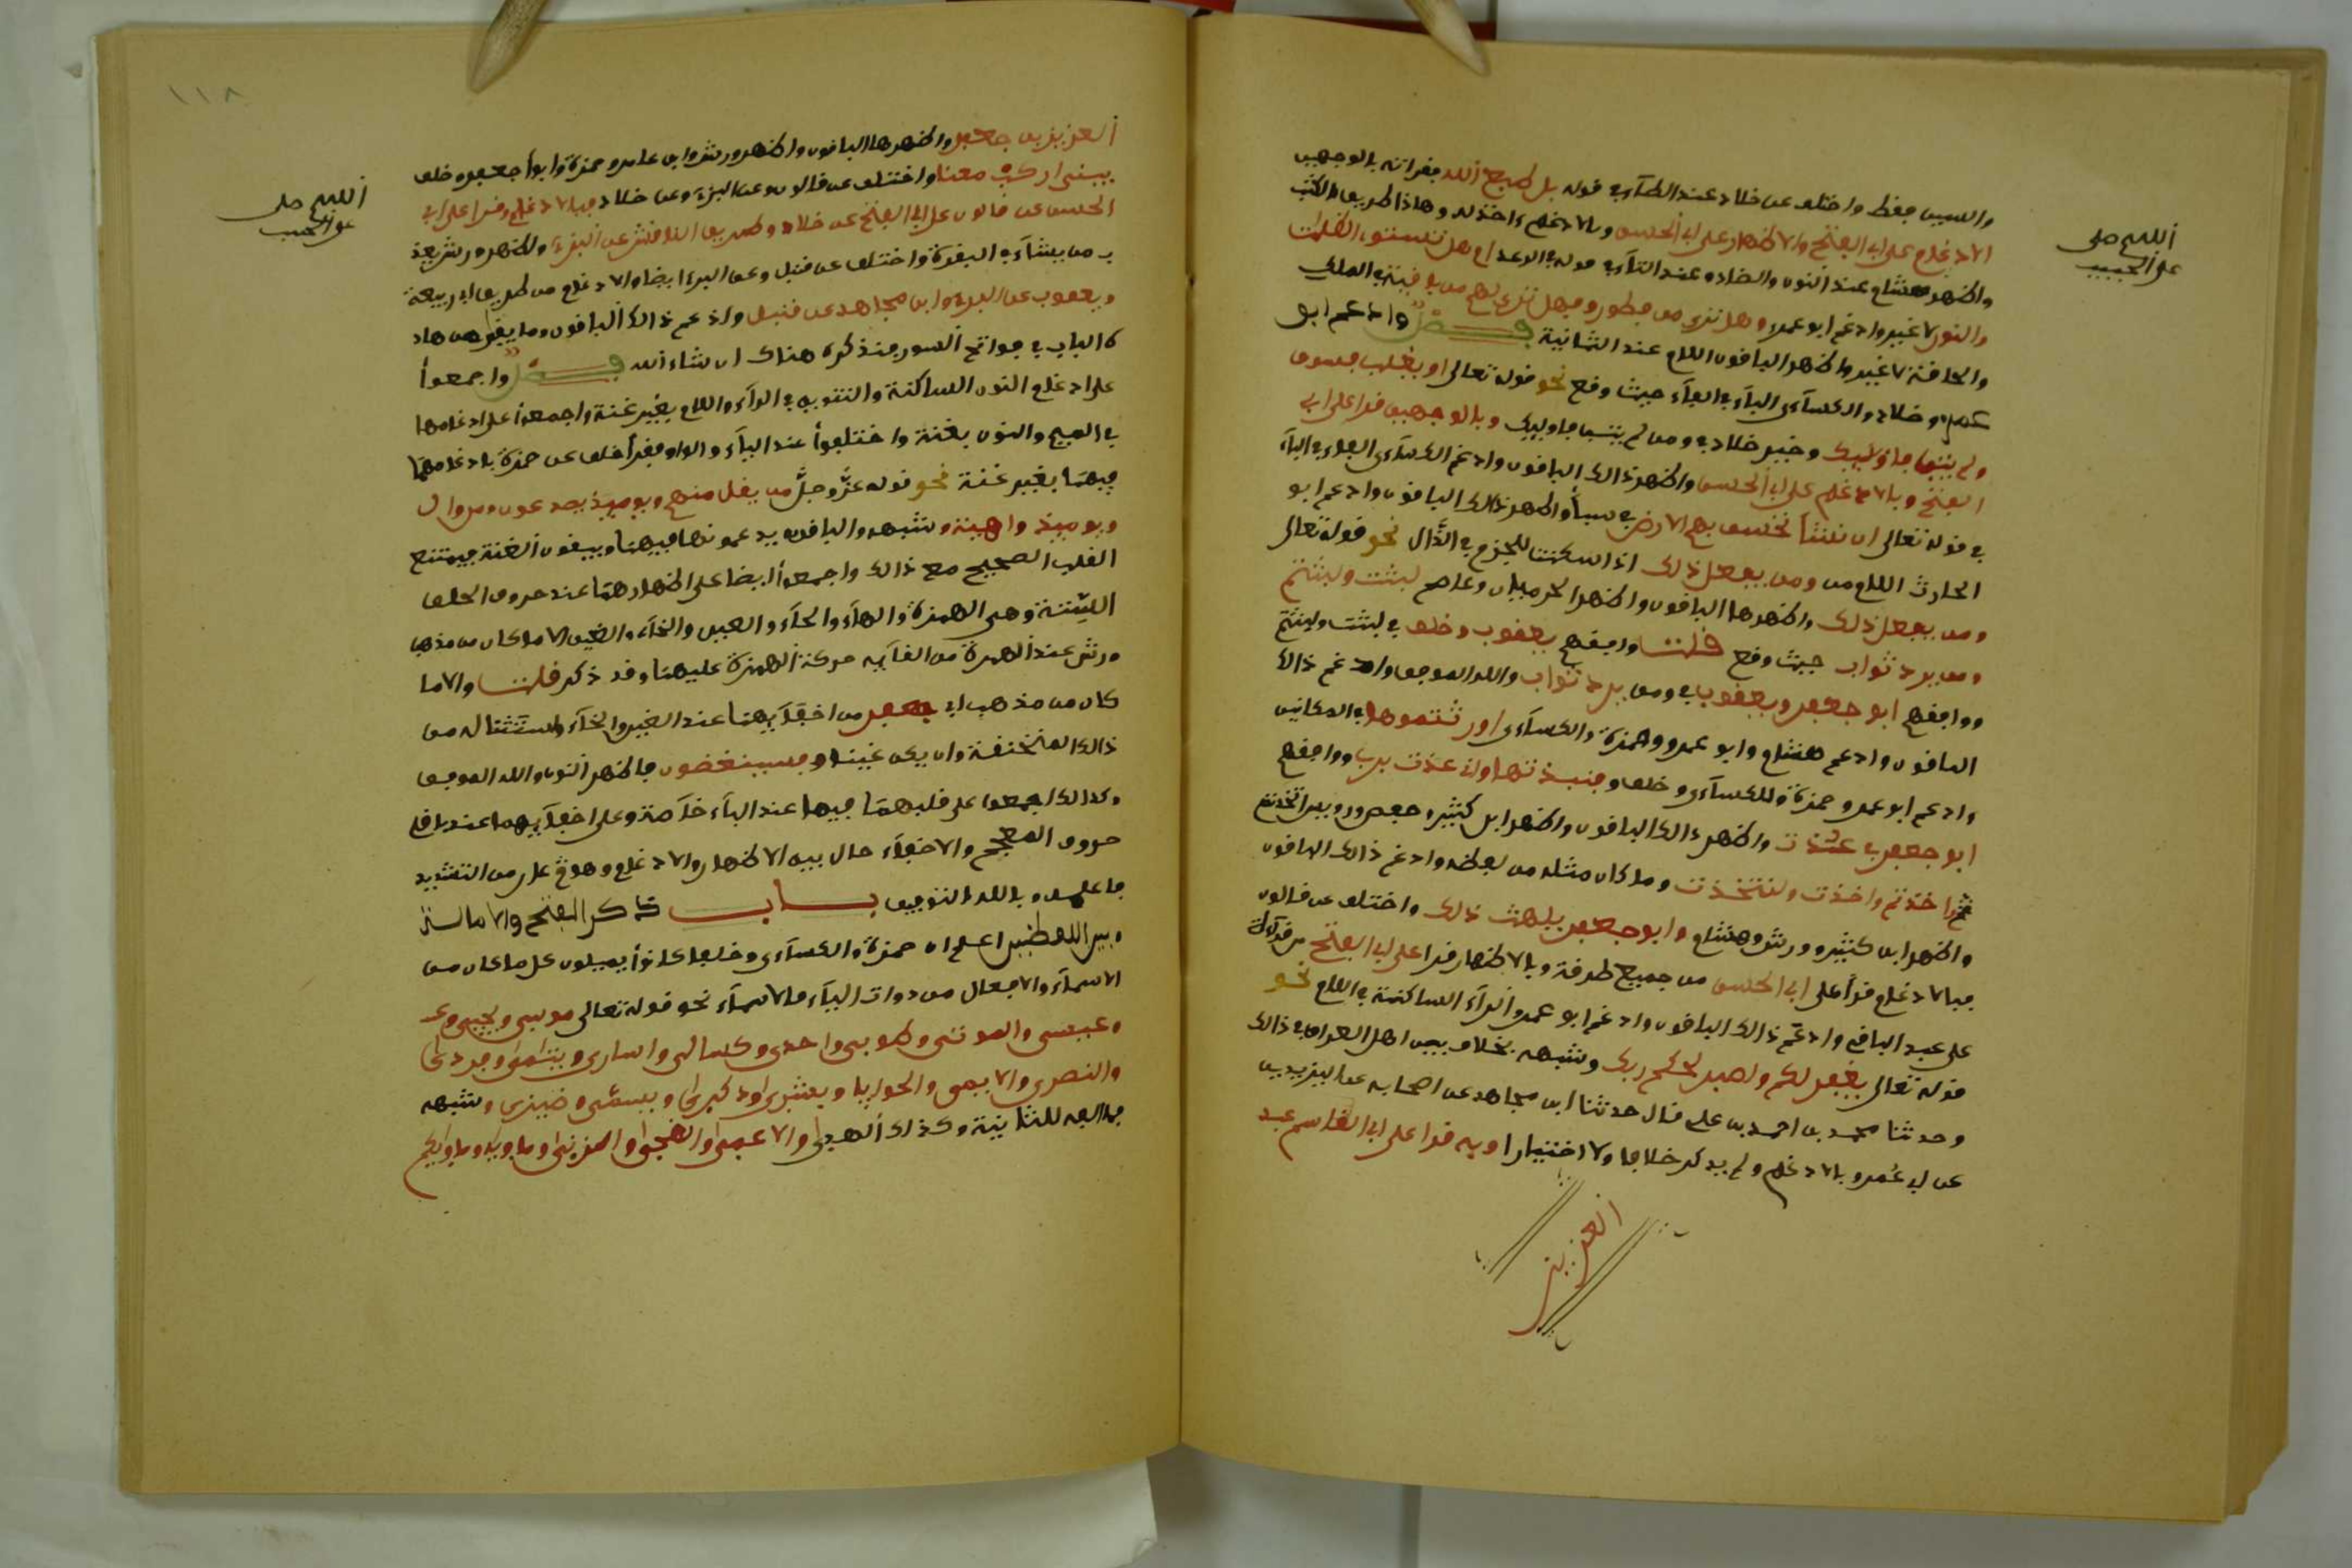 والسين فقط واختلف عن خلاد عند الطآء في قوله بل طبع الله فقراته بالوجهين
الادغام على ابي الفتح والاظهار على ابي الحسن وبالادغام ءاخذ له وهاذا طريق الكتب
واظهر هشام عند النون والضاد وعند التآء في قوله في الرعد ام هل تستوى الظلمت
والنور لا غير وادغم ابو عمرو هل ترى من فطور وفهل ترى لهم من باقية في الملك
والحاقة لا غير واظهر الباقون اللام عند الثمانية فصل وادغم ابو
عمرو وخلاد والكسآءى البآء في الفآء حيث وقع نحو قوله تعالى او يغلب فسوف
ولم يتب فاوليك وخير خلاد في ومن لم يتب فاوليك وبالوجهين قرا على ابي
الفتح وبالادغام على ابي الحسن واظهر ذالك الباقون وادغم الكسآءى الفآء في البآء
في قوله تعالى ان نشأ نخسف بهم الارض في سبأ واظهر ذالك الباقون وادغم ابو
الحارث اللام من ومن يفعل ذلك اذا سكنت للجزم في الذال نحو قوله تعالى
ومن يفعل ذلك واظهرها الباقون واظهر الحرميان وعاصم لبثت ولبثتم
ومن يرد ثواب حيث وقع قلت وافقهم يعقوب وخلف في لبثت ولبثتم
ووافقهم ابو جعفر ويعقوب في ومن يرد ثواب والله الموفق وادغم ذالك
الباقون وادغم هشام وابو عمرو وحمزة والكسآءى اورثتموها في المكانين
وادغم ابو عمرو وحمزة والكسآءى وخلف فنبذتها وانى عذت بربى ووافقهم
ابو جعفر في عذت واظهر ذالك الباقون واظهر ابن كثير وحفص ورويس اتخذتم
ثم اخذتم واخذت ولتخذت وما كان مثله من لفظه وادغم ذالك الباقون
واظهر ابن كثير وورش وهشام وابو جعفر يلهث ذلك واختلف عن قالون
فبالادغام قرأ على ابي الحسن من جميع طرقه وبالاظهار قرا على ابي الفتح من قرآءته
على عبد الباقي وادغم ذالك الباقون وادغم ابو عمرو الرآء الساكنة في اللام نحو
قوله تعالى يغفر لكم واصبر لحكم ربك وشبهه بخلاف بين اهل العراق في ذالك
وحدثنا محمد بن احمد بن على قال حدثنا ابن مجاهد عن اصحابه عن اليزيدى
عن ابي عمرو بالادغام ولم يذكر خلافا ولا اختيارا وبه قرا على ابي القاسم عبد
العزيز
اللهم صل
على الحبيب
١١٨
العزيز بن جعفر واظهرها الباقون واظهر ورش وابن عامر وحمزة وابو جعفر وخلف
يبنى اركب معنا واختلف عن قالون وعن البزى وعن خلاد فبالادغام قرا على ابي
الحسن عن قالون على ابي الفتح عن خلاد وطريق النقاش عن البزى واظهر ورش يعذ
ب من يشآء في البقرة واختلف عن قنبل وعن البزى ايضا والادغام من طريق ابي ربيعة
ويعقوب عن البزى وابن مجاهد عن قنبل وادغم ذالك الباقون وما بقى من هاذ
ه الباب في فواتح السور فنذكره هناك ان شاء الله فصل واجمعوا
على ادغام النون الساكنة والتنوين في الرآء واللام بغير غنة واجمعوا على ادغامها
في الميم والنون بغنة واختلفوا عند اليآء والواو فقرأ خلف عن حمزة بادغامهما
فيهما بغير غنة نحو قوله عز وجل من يقل منهم ويوميذ يصدعون ومن وال
ويوميذ واهية وشبهه والباقون يدغمونها فيهما ويبقون الغنة فيمتنع
القلب الصحيح مع ذالك واجمعوا ايضا على اظهارهما عند حروف الحلق
الستة وهى الهمزة والهآء والحآء والعين والخآء والغين الا ما كان من مذهب
ورش عند الهمزة من القآيه حركة الهمزة عليهما وقد ذكر قلت والا ما
كان من مذهب ابي جعفر من اخفآيهما عند الغين والخآء واستثنا له من
ذالك المنخنقة وان يكن غنيا فسينغضون فاظهر النون والله الموفق
وكذالك اجمعوا على قلبهما ميما عند البآء خآصة وعلى اخفآيهما عند باقي
حروف المعجم والاخفآء حال بين الاظهار والادغام وهو عار من التشديد
فاعلمه وبالله التوفيق باب ذكر الفتح والامالة
وبين اللفظين اعلم ان حمزة والكسآءى وخلف كانوا يميلون كل ما كان من
الاسمآء والافعال من دوات اليآء فالاسمآء نحو قوله تعالى موسى ويحيى و
وعيسى والموتى وطوبى واحدى وكسالى واسارى ويتامى وفردى
والنصرى والايمى والحوايا وبشرى وذكرى وبسمى وضيزى وشبهه
مما الفه للتانيث وكذالك الهدى والاعمى والضحى والزنى وماويه وماويكم
اللهم صل
على الحبيب